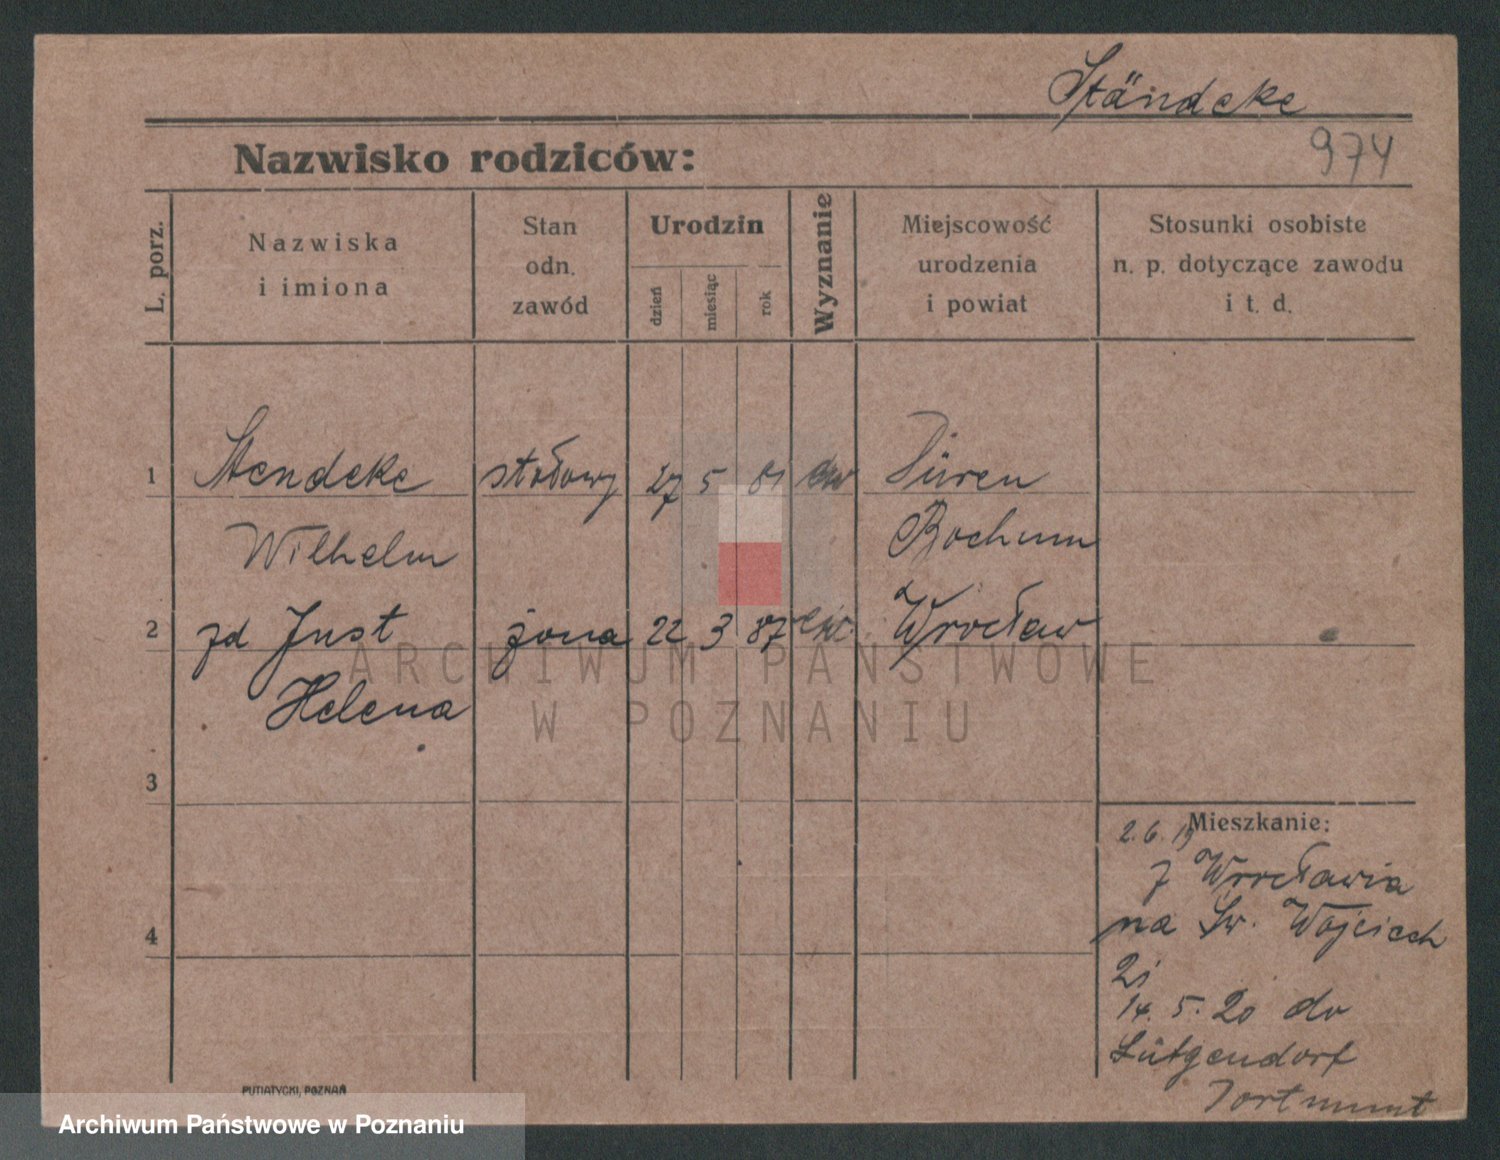 Ständeke
974
Nazwisko rodziców:
L. porz.
Nazwiska
i imiona
Stan
odn.
zawód
Urodzin
dzień
miesiąc
rok
Wyznanie
Miejscowość
urodzenia
i powiat
Stosunki osobiste
n. p. dotyczące zawodu
i t. d.
1 Stendeke stołowy 27 5 81 ew Düren
Wilhelm Bochum
2 zd Just żona 22 3 87 ew. Wrocław
Helena
3
4
Mieszkanie:
2.6.19
z Wrocławia
na Św. Wojciech
14.5.20 do
Lütgendorf
Dortmunt
PUTIATYCKI, POZNAŃ
ARCHIWUM PAŃSTWOWE
W POZNANIU
Archiwum Państwowe w Poznaniu